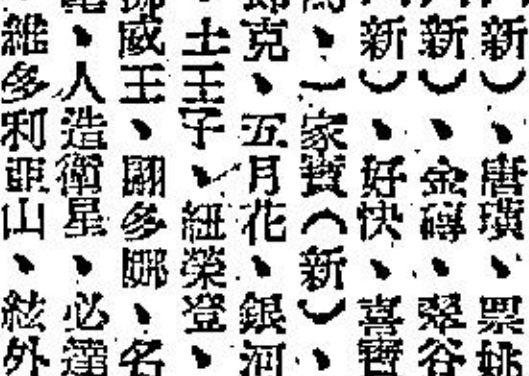 新）、唐璜、票姚
新）、金磚、翠谷
新）、好快、喜寶
、一家寶（新）、
克、五月花、銀河
士王、王子、紐榮登、
威王、關多娜、名
、人造衛星、必達
維多利亞山、絃外